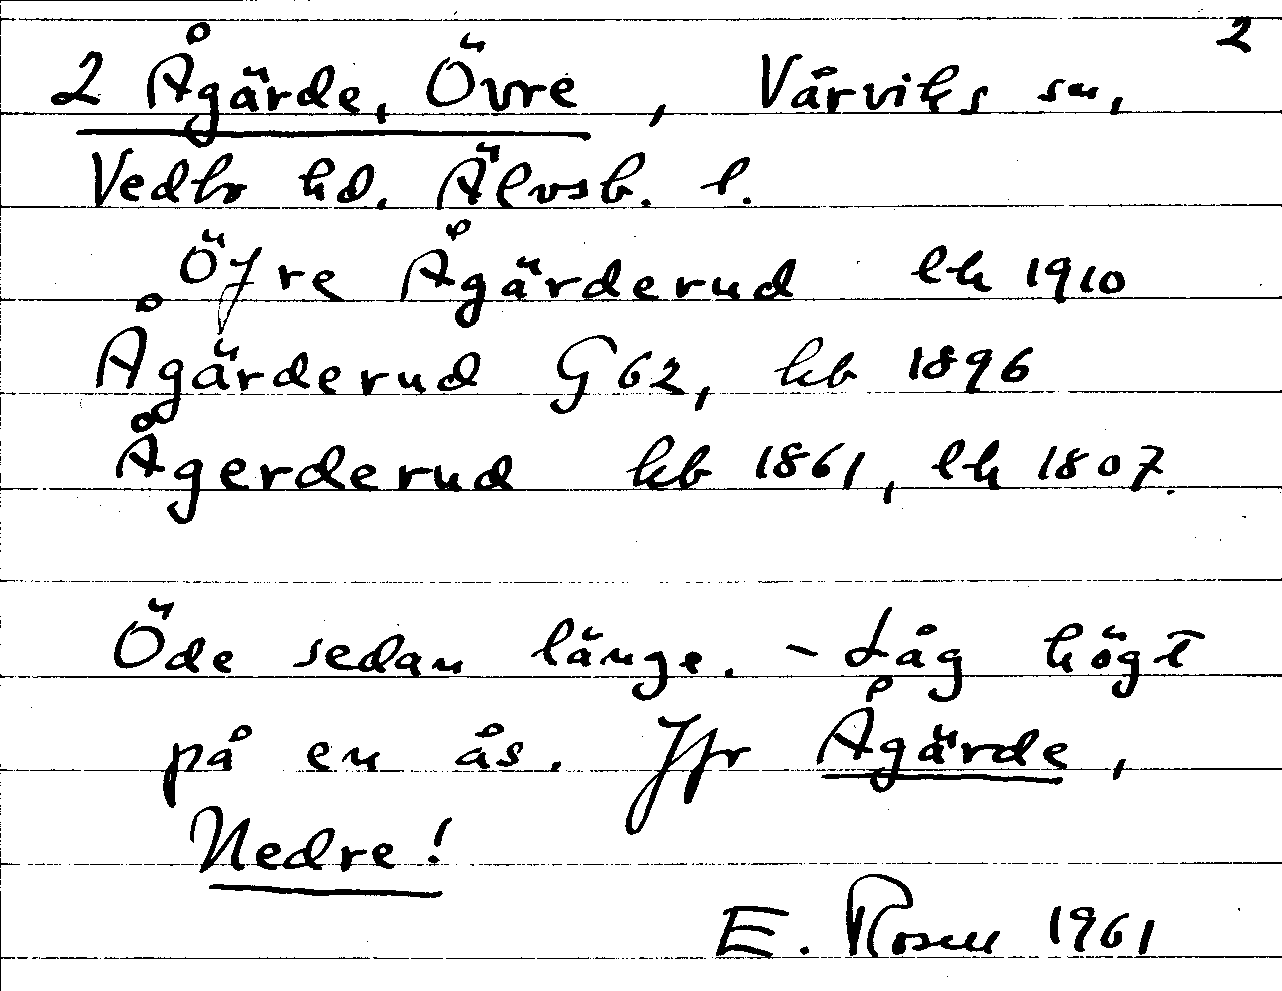 2
2 Ågärde, Övre, Vårviks sn,
Vedbo hd. Älvsb. l.
Öfre Ågärderud lh 1910
Ågärderud G 62, kb 1896
Ågerderud kb 1861, lh 1807.
Öde sedan länge. - Låg högt
på en ås. Jfr Ågärde,
Nedre!
E. Rosen 1961